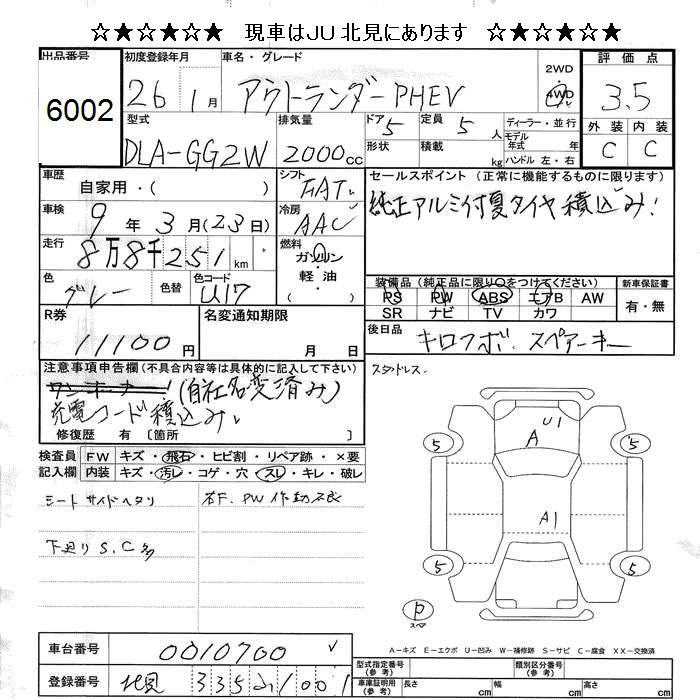 ☆★☆★☆★ 現車はJU北見にあります ☆★☆★☆★
出品番号 初度登録年月 車名・グレード 2WD 4WD 評価点
6002 26 1月 アウトランダーPHEV 3.5
型式 排気量 ドア 5 定員 5 人 ディーラー・並行 外装 内装
DLA-GG2W 2000cc 形状 積載 kg モデル年式 年式 ハンドル 左・右 C C
車歴 自家用・( ) シフト FAT セールスポイント(正常に機能するものに限ります)
車検 9年 3月(23日) 冷房 AAC 純正アルミ付夏タイヤ積込み!
走行 8万8千251km 燃料 ガソリン 軽油
色 グレー 色替 色コード U17 装備品(純正品に限り○をつけてください) 新車保証書
PS PW ABS エアB AW 有・無
SR ナビ TV カワ
R券 11100円 名変通知期限 月 日 後日品 キロクボ. スペアーキー
注意事項申告欄(不具合内容等は具体的に記入して下さい) スタットレス.
ワンオーナー!(自社名変済み)
充電コード積込み.
修復歴 有〔箇所 〕
検査員 FW キズ・飛石・ヒビ割・リペア跡・×要
記入欄 内装 キズ・汚レ・コゲ・穴・スレ・キレ・破レ
シートサイドヘタリ 右F. PW作動不良
下廻りS.C多
U1
A
5 5
A1
5 5
P
スペア
A-キズ E-エクボ U-凹み W-補修跡 S-サビ C-腐食 XX-交換済
車台番号 0010700 型式指定番号(参考) 類別区分番号(参考)
登録番号 北見 335 001 車庫証明用(参考) 長さ cm 幅 cm 高さ cm